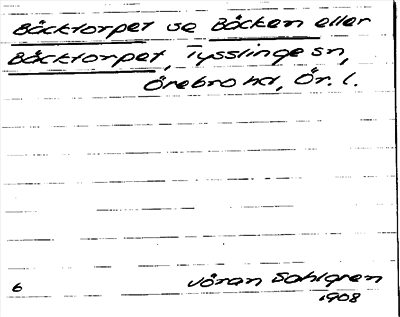 Bäcktorpet se Bäcken eller
Bäcktorpet, Tysslinge sn,
Örebro hd, Ör. l.
6 Jöran Sahlgren
1908